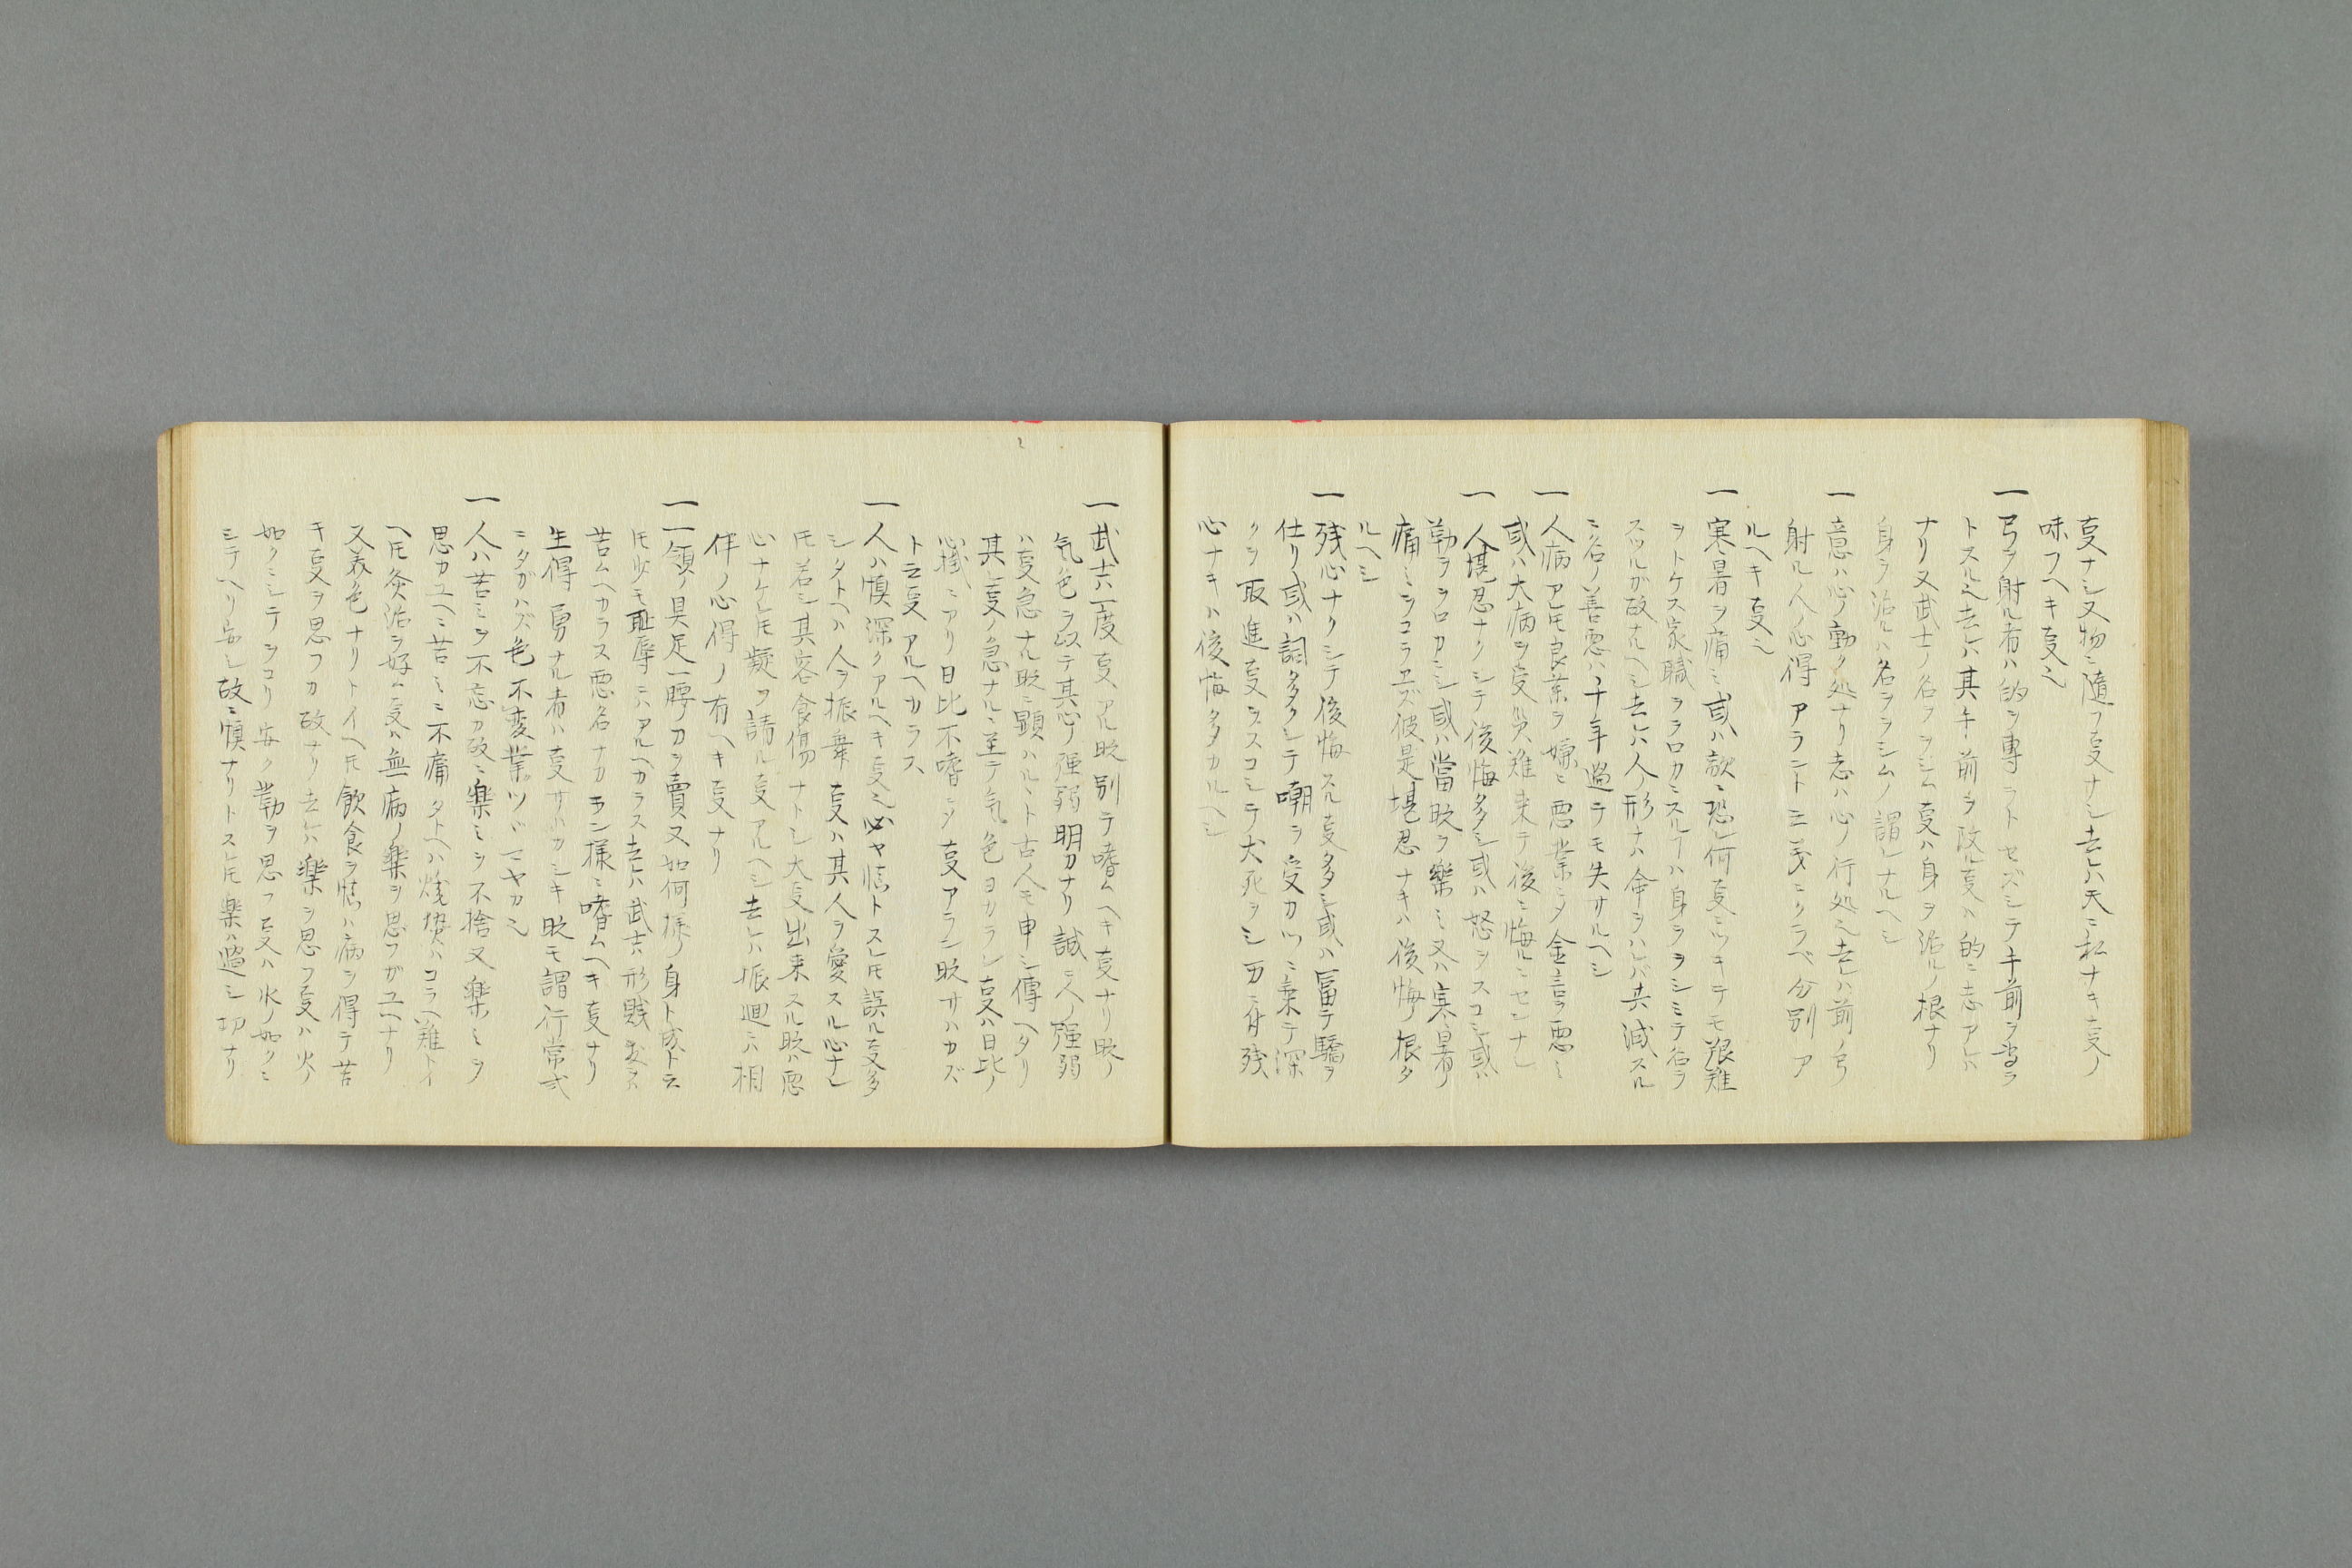 叓ナシ又物ニ随フ叓ナシ去レハ天ニ私ナキ叓ノ
味フヘキ叓也
一弓ヲ射ル者ハ的ヲ専ラトセズシテ手前ヲ専ラ
トスル也去レハ其手前ヲ改ル叓ハ的ニ志アレハ
ナリ又武士ノ名ヲヲシム叓ハ身ヲ治ルノ根ナリ
身ヲ治ルハ名ヲヲシムノ謂レナルヘシ
一意ハ心ノ動ク処ナリ志ハ心ノ行処也去レハ前ノ弓
射ル人ノ心得アラント云義ニクラベ分別ア
ルヘキ叓也
一寒暑ヲ痛ミ或ハ敵ニ恐レ何叓ニツキテモ艱難
ヲトケス家職ヲヲロカニスル丁ハ身ヲヲシミテ名ヲ
スツルガ故ナルヘシ去レハ人ノ形ナハ命ヲハレバ共滅スル
ニ名ノ善悪ハ千年過テモ失サルヘシ
一人病アレ𪜈良薬ヲ嫌ヒ悪業ニタ金言ヲ悪ミ
或ハ大病ヲ受災難来テ後ニ悔ルニセンナシ
一人堪忍ナクシテ後悔多シ或ハ怒ヲスコシ或ハ
勤ヲヲロカニシ或ハ當時ヲ樂ミ又ハ寒暑ノ
痛ミヲコラヱズ彼是堪忍ナキハ後悔ノ根タ
ルヘシ
一残心ナクシテ後悔スル叓多シ或ハ冨テ驕ヲ
仕リ或ハ詞多クシテ嘲ヲ受カツニ乗テ深
クヲ取進叓ヲスコシテ犬死ヲシ万一有残
心ナキハ後悔多カルヘシ
一武士ハ一度叓アル時別テ嗜ムヘキ叓ナリ時ノ
気色ヲ以テ其心ノ強弱明カナリ誠ニ人ノ強弱
ハ叓急ナル時ニ顕ハルヽト古人モ申シ傳ヘタリ
其レ叓ノ急ナルニ至テ気色ヨカラン叓ハ日比ノ
心掛ニアリ日比不嗜ニタ叓アラン時サハカズ
ト云叓アルヘカラス
一人ハ慎深クアルヘキ叓也必ヤ慎トスレ𪜈誤ル叓多
シタトヘハ人ヲ振舞叓ハ其人ヲ愛スル心ナレ
𪜈若シ其客食傷ナトシ大叓出来スル時ハ悪
心ナケレ𪜈疑ヲ請ル叓アルヘシ去レハ振廻ニハ相
伴ノ心得ノ有ヘキ叓ナリ
一一領ノ具足一腰ノ刀ヲ賣又如何様ノ身ト成トモ
𪜈少モ恥辱ニハアルヘカラス去レハ武士ハ形賤
苦ムヘカラス悪名ナカラン様ニ嗜ムヘキ叓ナリ
生得勇ナル者ハ叓サハカシキ時モ謂行常式
ニタガハズ色不変業ツヾマヤカ也
一人ハ苦ミヲ不忘カ故ニ樂ミヲ不捨又樂ミヲ
思カユヘニ苦ミニ不痛タトヘハ焼熱ハコラヘ難トイ
ヘ𪜈灸治ヲ好ム叓ハ無病ノ樂ヲ思フガユヘナリ
又美色ナリトイヘ𪜈飲食ヲ慎ハ病ヲ得テ苦
キ叓ヲ思フカ故ナリ去レハ樂ヲ思フ叓ハ火ノ
如クニシテヲコリ安ク勤ヲ思フ叓ハ水ノ如クニ
シテヘリ安シ故ニ慎ナリトスレ𪜈樂ハ過シ切ナリ